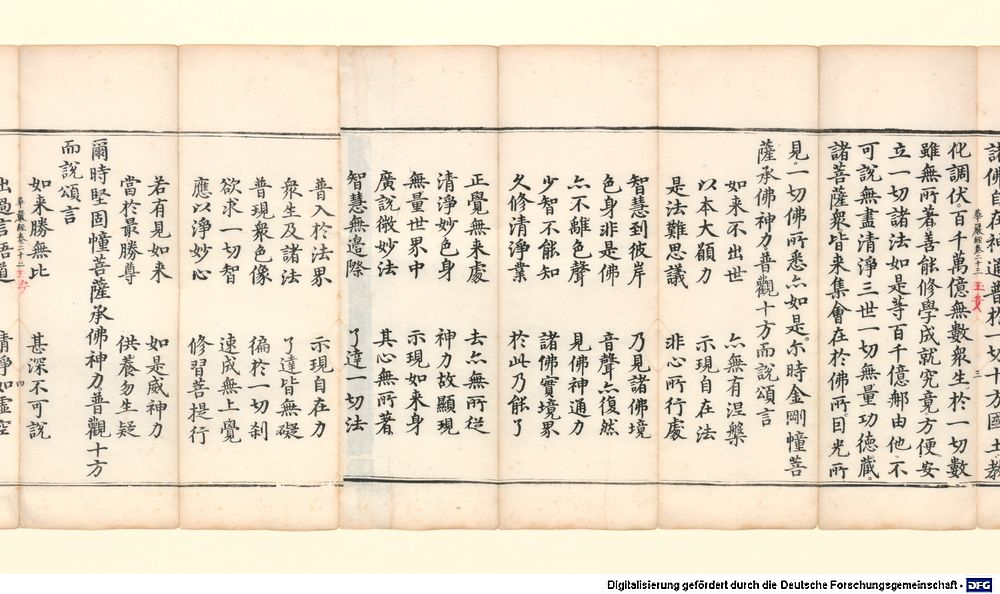 諸佛自在神通普於一切十方國土教
華嚴經卷二十三 三
化調伏百千萬億無數衆生於一切數
雖無所著善能修學成就究竟方便安
立一切諸法如是等百千億那由他不
可說無盡清淨三世一切無量功德藏
諸菩薩衆皆来集會在於佛所目光所
見一切佛所悉亦如是尒時金剛幢菩
薩承佛神力普觀十方而說頌言
如来不出世 亦無有涅槃
以本大願力 示現自在法
是法難思議 非心所行處
智慧到彼岸 乃見諸佛境
色身非是佛 音聲亦復然
亦不離色聲 見佛神通力
少智不能知 諸佛實境界
久修清淨業 於此乃能了
正覺無来處 去亦無所從
清淨妙色身 神力故顯現
無量世界中 示現如来身
廣說微妙法 其心無所著
智慧無邊際 了達一切法
普入於法界 示現自在力
衆生及諸法 了達皆無礙
普現衆色像 徧於一切刹
欲求一切智 速成無上覺
應以淨妙心 修習菩提行
若有見如来 如是威神力
當於最勝尊 供養勿生疑
爾時堅固幢菩薩承佛神力普觀十方
而說頌言
如来勝無比 甚深不可說
華嚴經卷二十三 四
出過言語道 清淨如虛空
Digitalisierung gefördert durch die Deutsche Forschungsgemeinschaft - DFG